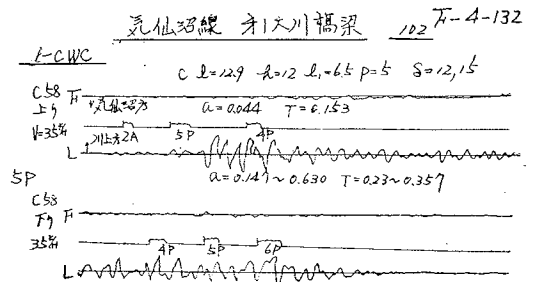 気仙沼線 大川橋梁 102 F-4-132
1-CWC
C l=12.9 h=12 l₁=6.5 P=5 δ=12,15
C58
上り F 気仙沼方 a=0.044 T=0.153
V=35㎞/h 川上方 2A 5P 4P
L
5P a=0.147~0.630 T=0.23~0.357
C58
下り F
35㎞/h 4P 5P 6P
L